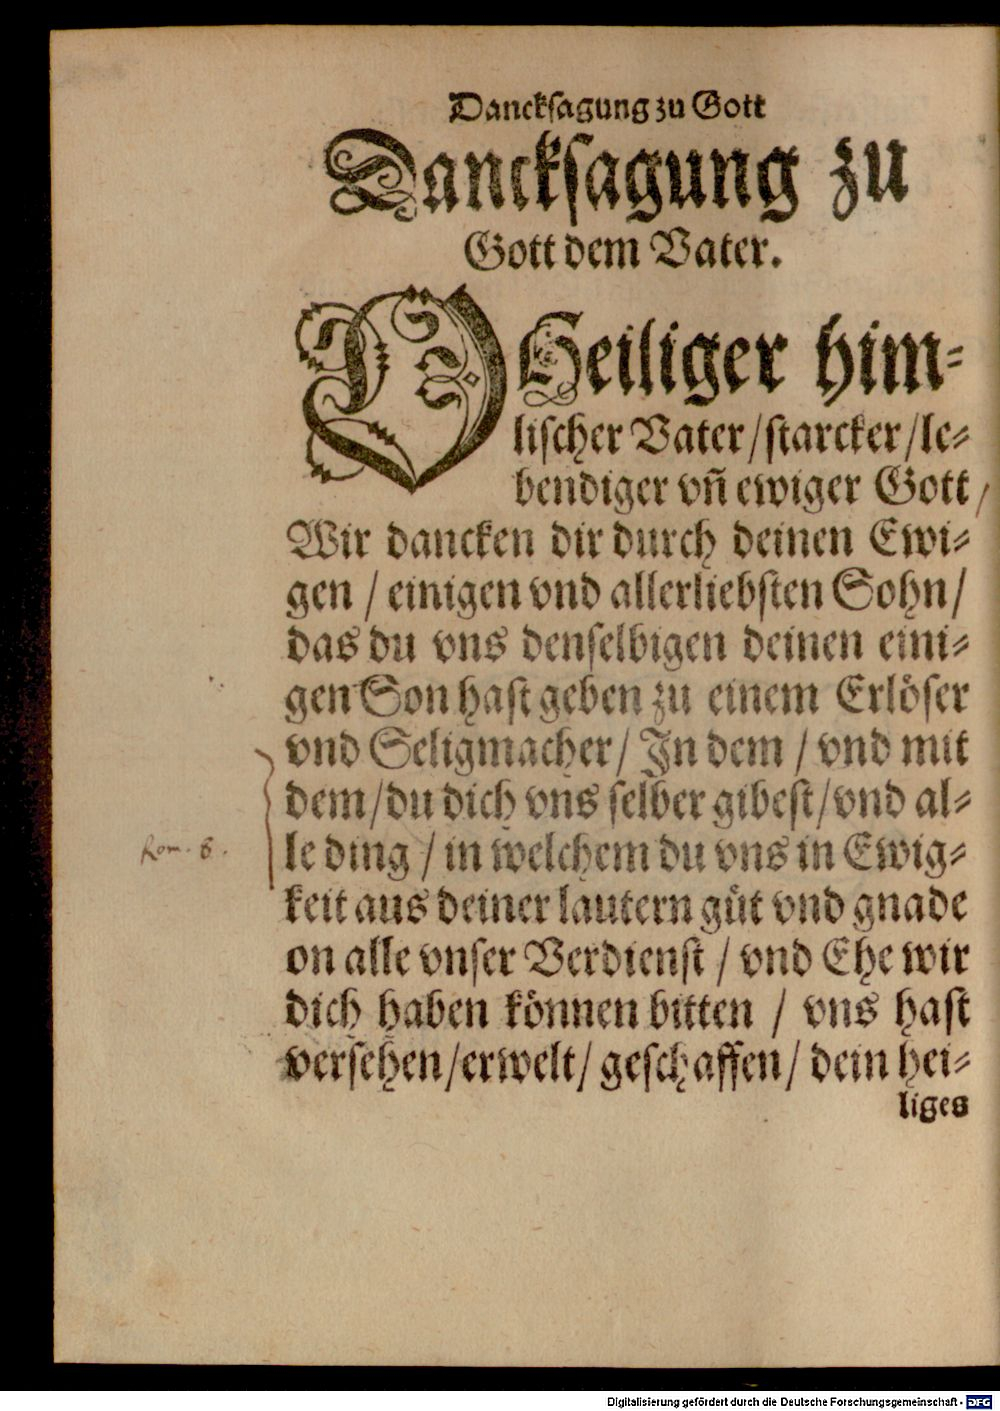 Danckſagung zu Gott
Danckſagung zu
Gott dem Vater.
O Heiliger him⸗
liſcher Vater / ſtarcker / le⸗
bendiger vñ ewiger Gott /
Wir dancken dir durch deinen Ewi⸗
gen / einigen vnd allerliebſten Sohn /
das du vns denſelbigen deinen eini⸗
gen Son haſt geben zu einem Erlöſer
vnd Seligmacher / In dem / vnd mit
dem / du dich vns ſelber gibeſt / vnd al⸗
Rom. 8.
le ding / in welchem du vns in Ewig⸗
keit aus deiner lautern güt vnd gnade
on alle vnſer Verdienſt / vnd Ehe wir
dich haben können bitten / vns haſt
verſehen / erwelt / geſchaffen / dein hei⸗
liges
Digitalisierung gefördert durch die Deutsche Forschungsgemeinschaft - DFG